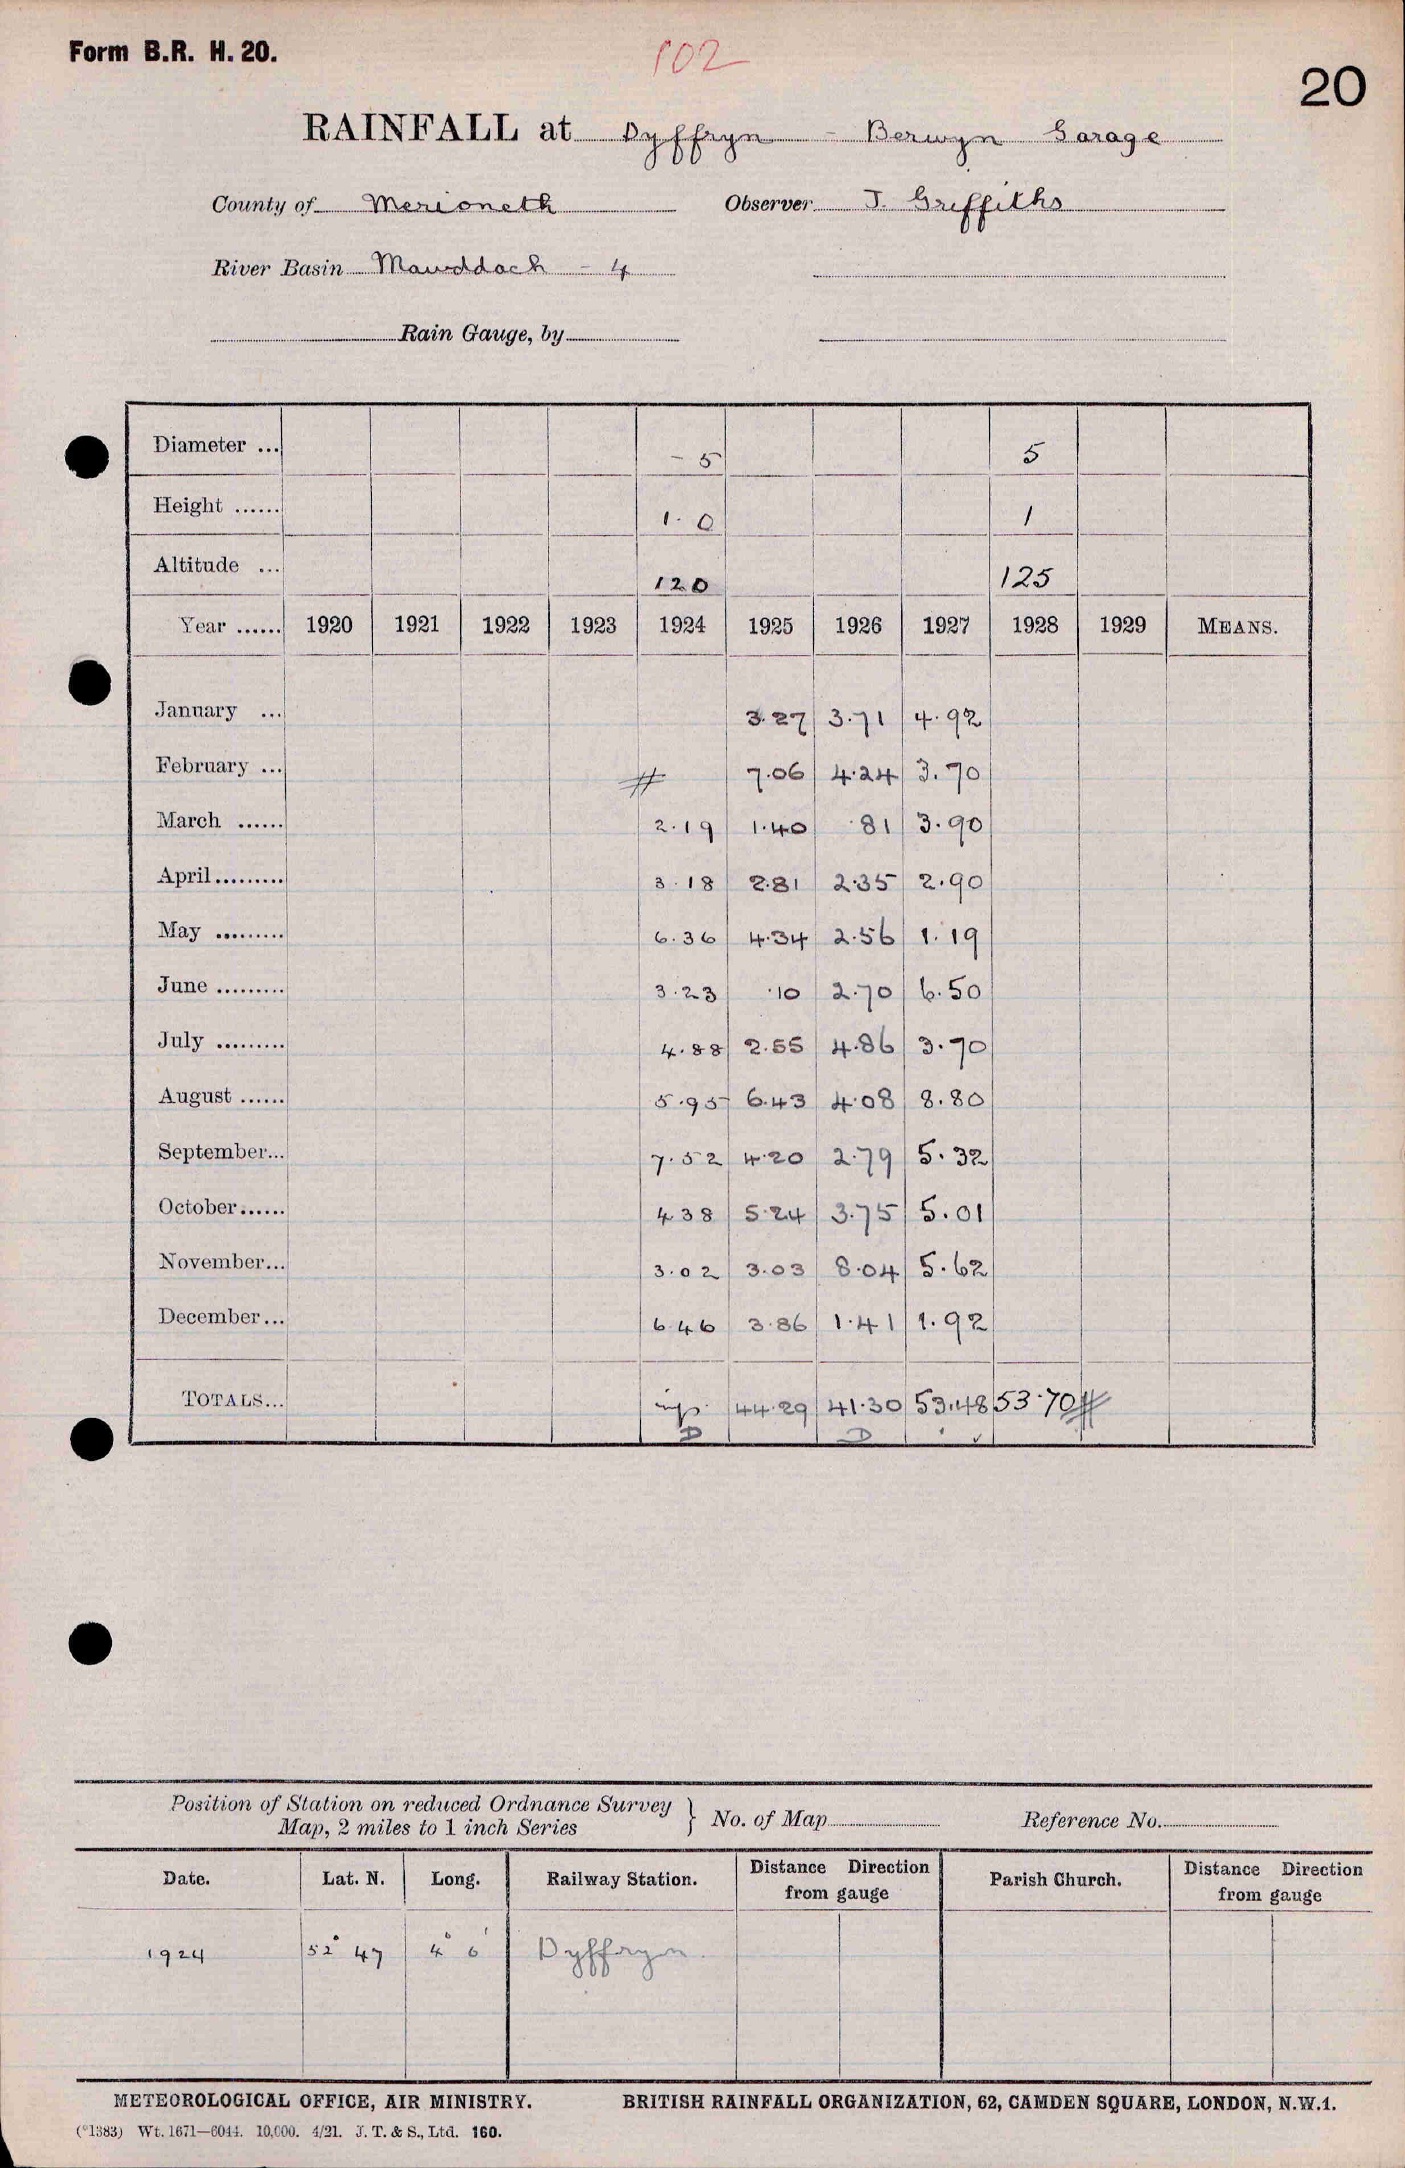 Form B.R. H. 20.
102
20
RAINFALL at Dyffryn - Berwyn Garage
County of Merioneth Observer J. Griffiths
River Basin Mawddach - 4
Rain Gauge, by
Diameter ... - 5 5
Height ...... 1. 0 1
Altitude ... 120 125
Year ...... 1920 1921 1922 1923 1924 1925 1926 1927 1928 1929 MEANS.
January ... 3.27 3.71 4.92
February ... # 7.06 4.24 3.70
March ...... 2.19 1.40 .81 3.90
April......... 3.18 2.81 2.35 2.90
May ......... 6.36 4.34 2.56 1.19
June ......... 3.23 .10 2.70 6.50
July ......... 4.88 2.55 4.86 3.70
August ...... 5.95 6.43 4.08 8.80
September... 7.52 4.20 2.79 5.32
October...... 4 38 5.24 3.75 5.01
November... 3.02 3.03 8.04 5.62
December... 6 46 3.86 1.41 1.92
TOTALS... 44.29 41.30 53.48 53.70 #
D D ✓
Position of Station on reduced Ordnance Survey
Map, 2 miles to 1 inch Series } No. of Map Reference No.
Date. Lat. N. Long. Railway Station. Distance Direction from gauge Parish Church. Distance Direction from gauge
1924 52° 47 4° 6' Dyffryn.
METEOROLOGICAL OFFICE, AIR MINISTRY. BRITISH RAINFALL ORGANIZATION, 62, CAMDEN SQUARE, LONDON, N.W.1.
(*1383) Wt. 1671—6044. 10,000. 4/21. J. T. & S., Ltd. 160.